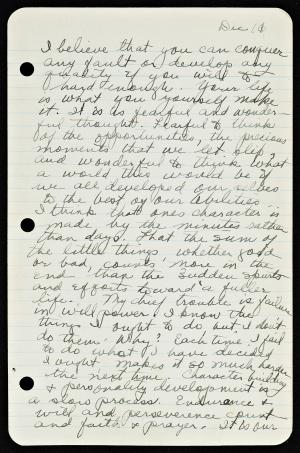 Dec 18
I believe that you can conquer
any fault or develop any
quality if you will to
hard enough. Your life
is what you yourself make
it. It is so fearful and wonder-
ful thought. Fearful to think
of the opportunities, the precious
moments that we let slip
and wonderful to think what
a world this would be if
we all developed ourselves
to the best of our abilities...
I think that one's character is
made by the minutes rather
than days. That the sum of
the little things, whether good
or bad, count more in the
end than the sudden spurts
and efforts toward a fuller
life. My chief trouble is failure
in will power. I know the
things I ought to do, but I don't
do them. Why? Each time I fail
to do what I have decided
I ought makes it so much harder
the next time. Character building
& personality development is
a slow process. Endurance &
will and perseverence count
and faith & prayer. It is our